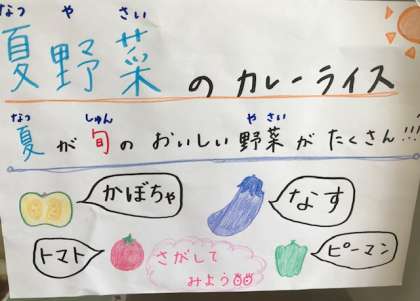 なつ や さい
夏野菜のカレーライス
なつ しゅん や さい
夏が旬のおいしい野菜がたくさん!!!
かぼちゃ
なす
トマト
さがして
みよう
ピーマン